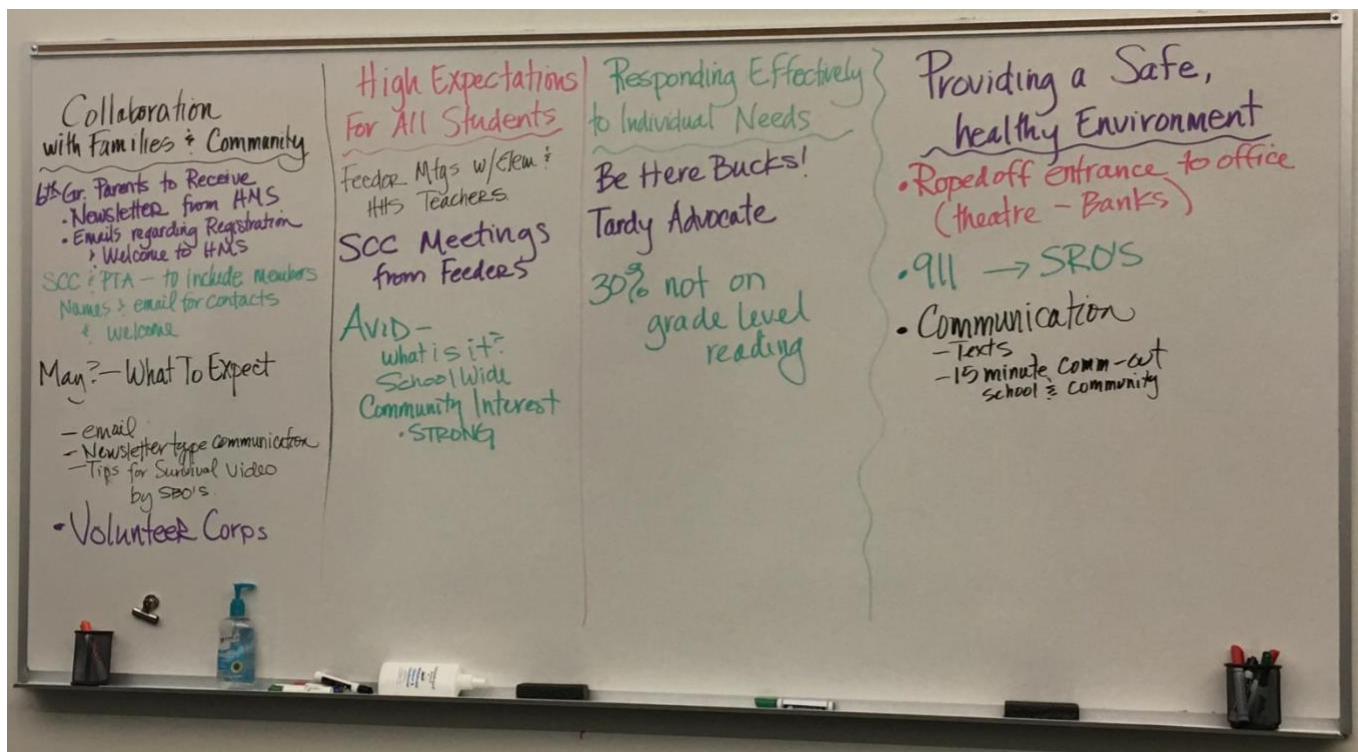 Collaboration
with Families & Community
6th Gr. Parents to Receive
• Newsletter from HMS
• Emails regarding Registration
> Welcome to HMS
SCC & PTA – to include members
Names > email for contacts
& welcome
May? – What To Expect
– email
– Newsletter type communication
– Tips for Survival Video
by SBO'S.
• Volunteer Corps
High Expectations
For All Students
Feeder Mtgs w/Elem &
HHS Teachers.
SCC Meetings
from Feeders
AVID –
What is it?
School Wide
Community Interest
• STRONG
Responding Effectively
to Individual Needs
Be Here Bucks!
Tardy Advocate
30% not on
grade level
reading
Providing a Safe,
healthy Environment
• Roped off entrance to office
(theatre – Banks)
• 911 → SRO'S
• Communication
– Texts
– 15 minute comm-out
school & community